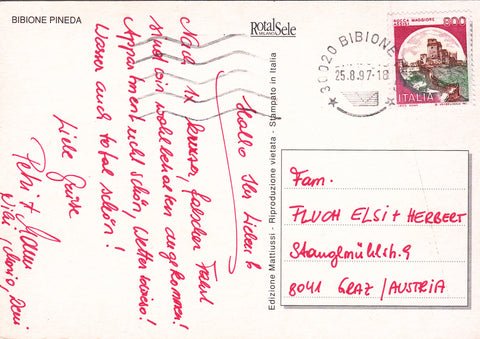 BIBIONE PINEDA
RotalSele
MILANO
Hallo Ihr Lieben 6
Nach 1x kurzer, falscher Fahrt
sind wir wohlbehalten angekommen!
Appartment recht schön, Wetter sowieso!
Wasser auch total schön!
Liebe Grüße
Edizione Mattiussi - Riproduzione vietata - Stampato in Italia
30020 BIBIONE
25.8.97-18
ROCCA MAGGIORE
ASSISI
800
ITALIA
Fam.
FLUCH ELSI + HERBERT
Stanglmühlstr. 9
8041 GRAZ / AUSTRIA